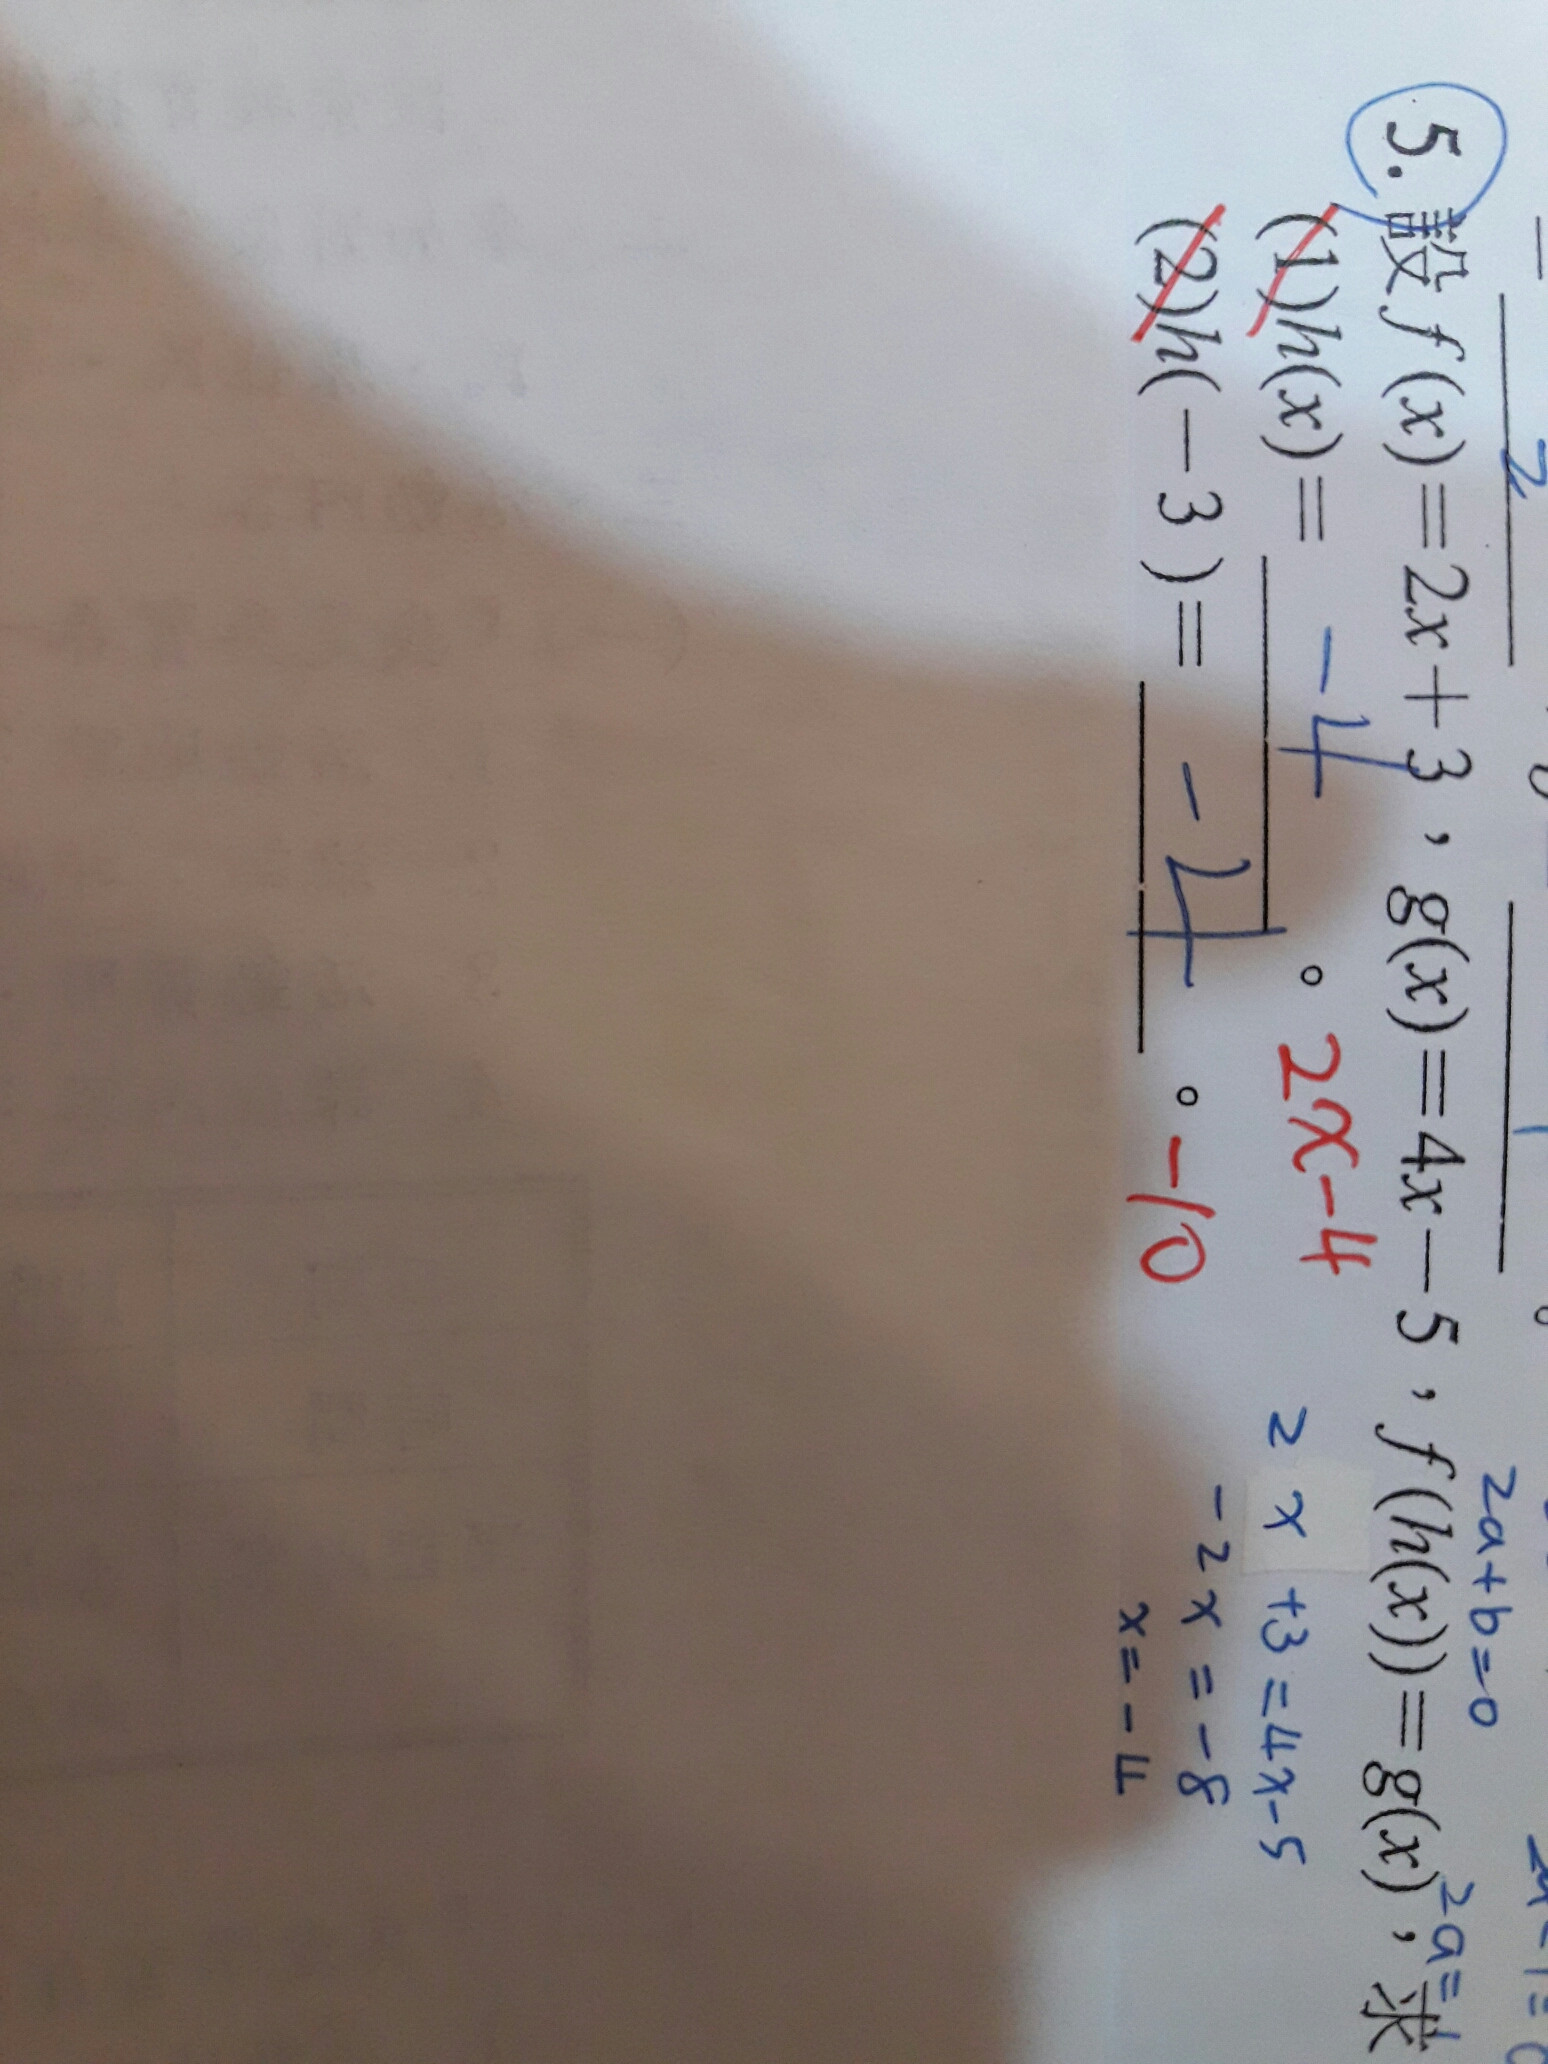 5. 設 f(x)=2x+3，g(x)=4x−5，f(h(x))=g(x)，求
(1)h(x)= −4 。 2x−4
(2)h(−3)= −4 。 −10
2x+3=4x-5
-2x=-8
x=-4
2a+b=0
2a=1
2